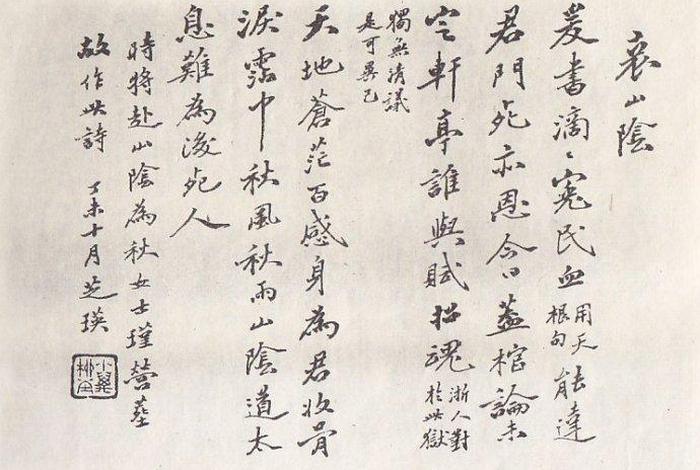 哀山陰
爰書滴〻冤民血用天根句能達
君門死亦恩今日蓋棺論未
定軒亭誰與賦招魂浙人對於此獄
獨無清議是可異已
天地蒼茫百感身為君收骨
淚霑巾秋風秋雨山陰道太
息難為後死人
時將赴山陰為秋女士瑾營葬
故作此詩 丁未十月芝瑛
小萬柳堂